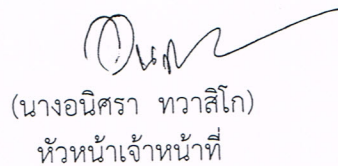 (นางอนิศรา ทวาสิโก)
หัวหน้าเจ้าหน้าที่